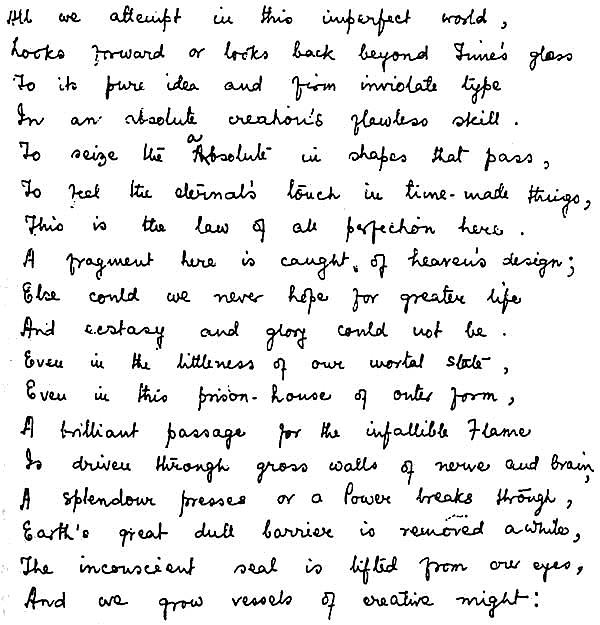 All we attempt in this imperfect world,
Looks forward or looks back beyond Time's gloss
To its pure idea and firm inviolate type
In an absolute creation's flawless skill.
To seize the absolute in shapes that pass,
To feel the eternal's touch in time-made things,
This is the law of all perfection here.
A fragment here is caught of heaven's design;
Else could we never hope for greater life
And ecstasy and glory could not be.
Even in the littleness of our mortal state,
Even in this prison-house of outer form,
A brilliant passage for the infallible Flame
Is driven through gross walls of nerve and brain,
A splendour presses or a Power breaks through,
Earth's great dull barrier is removed awhile,
The inconscient seal is lifted from our eyes,
And we grow vessels of creative might: